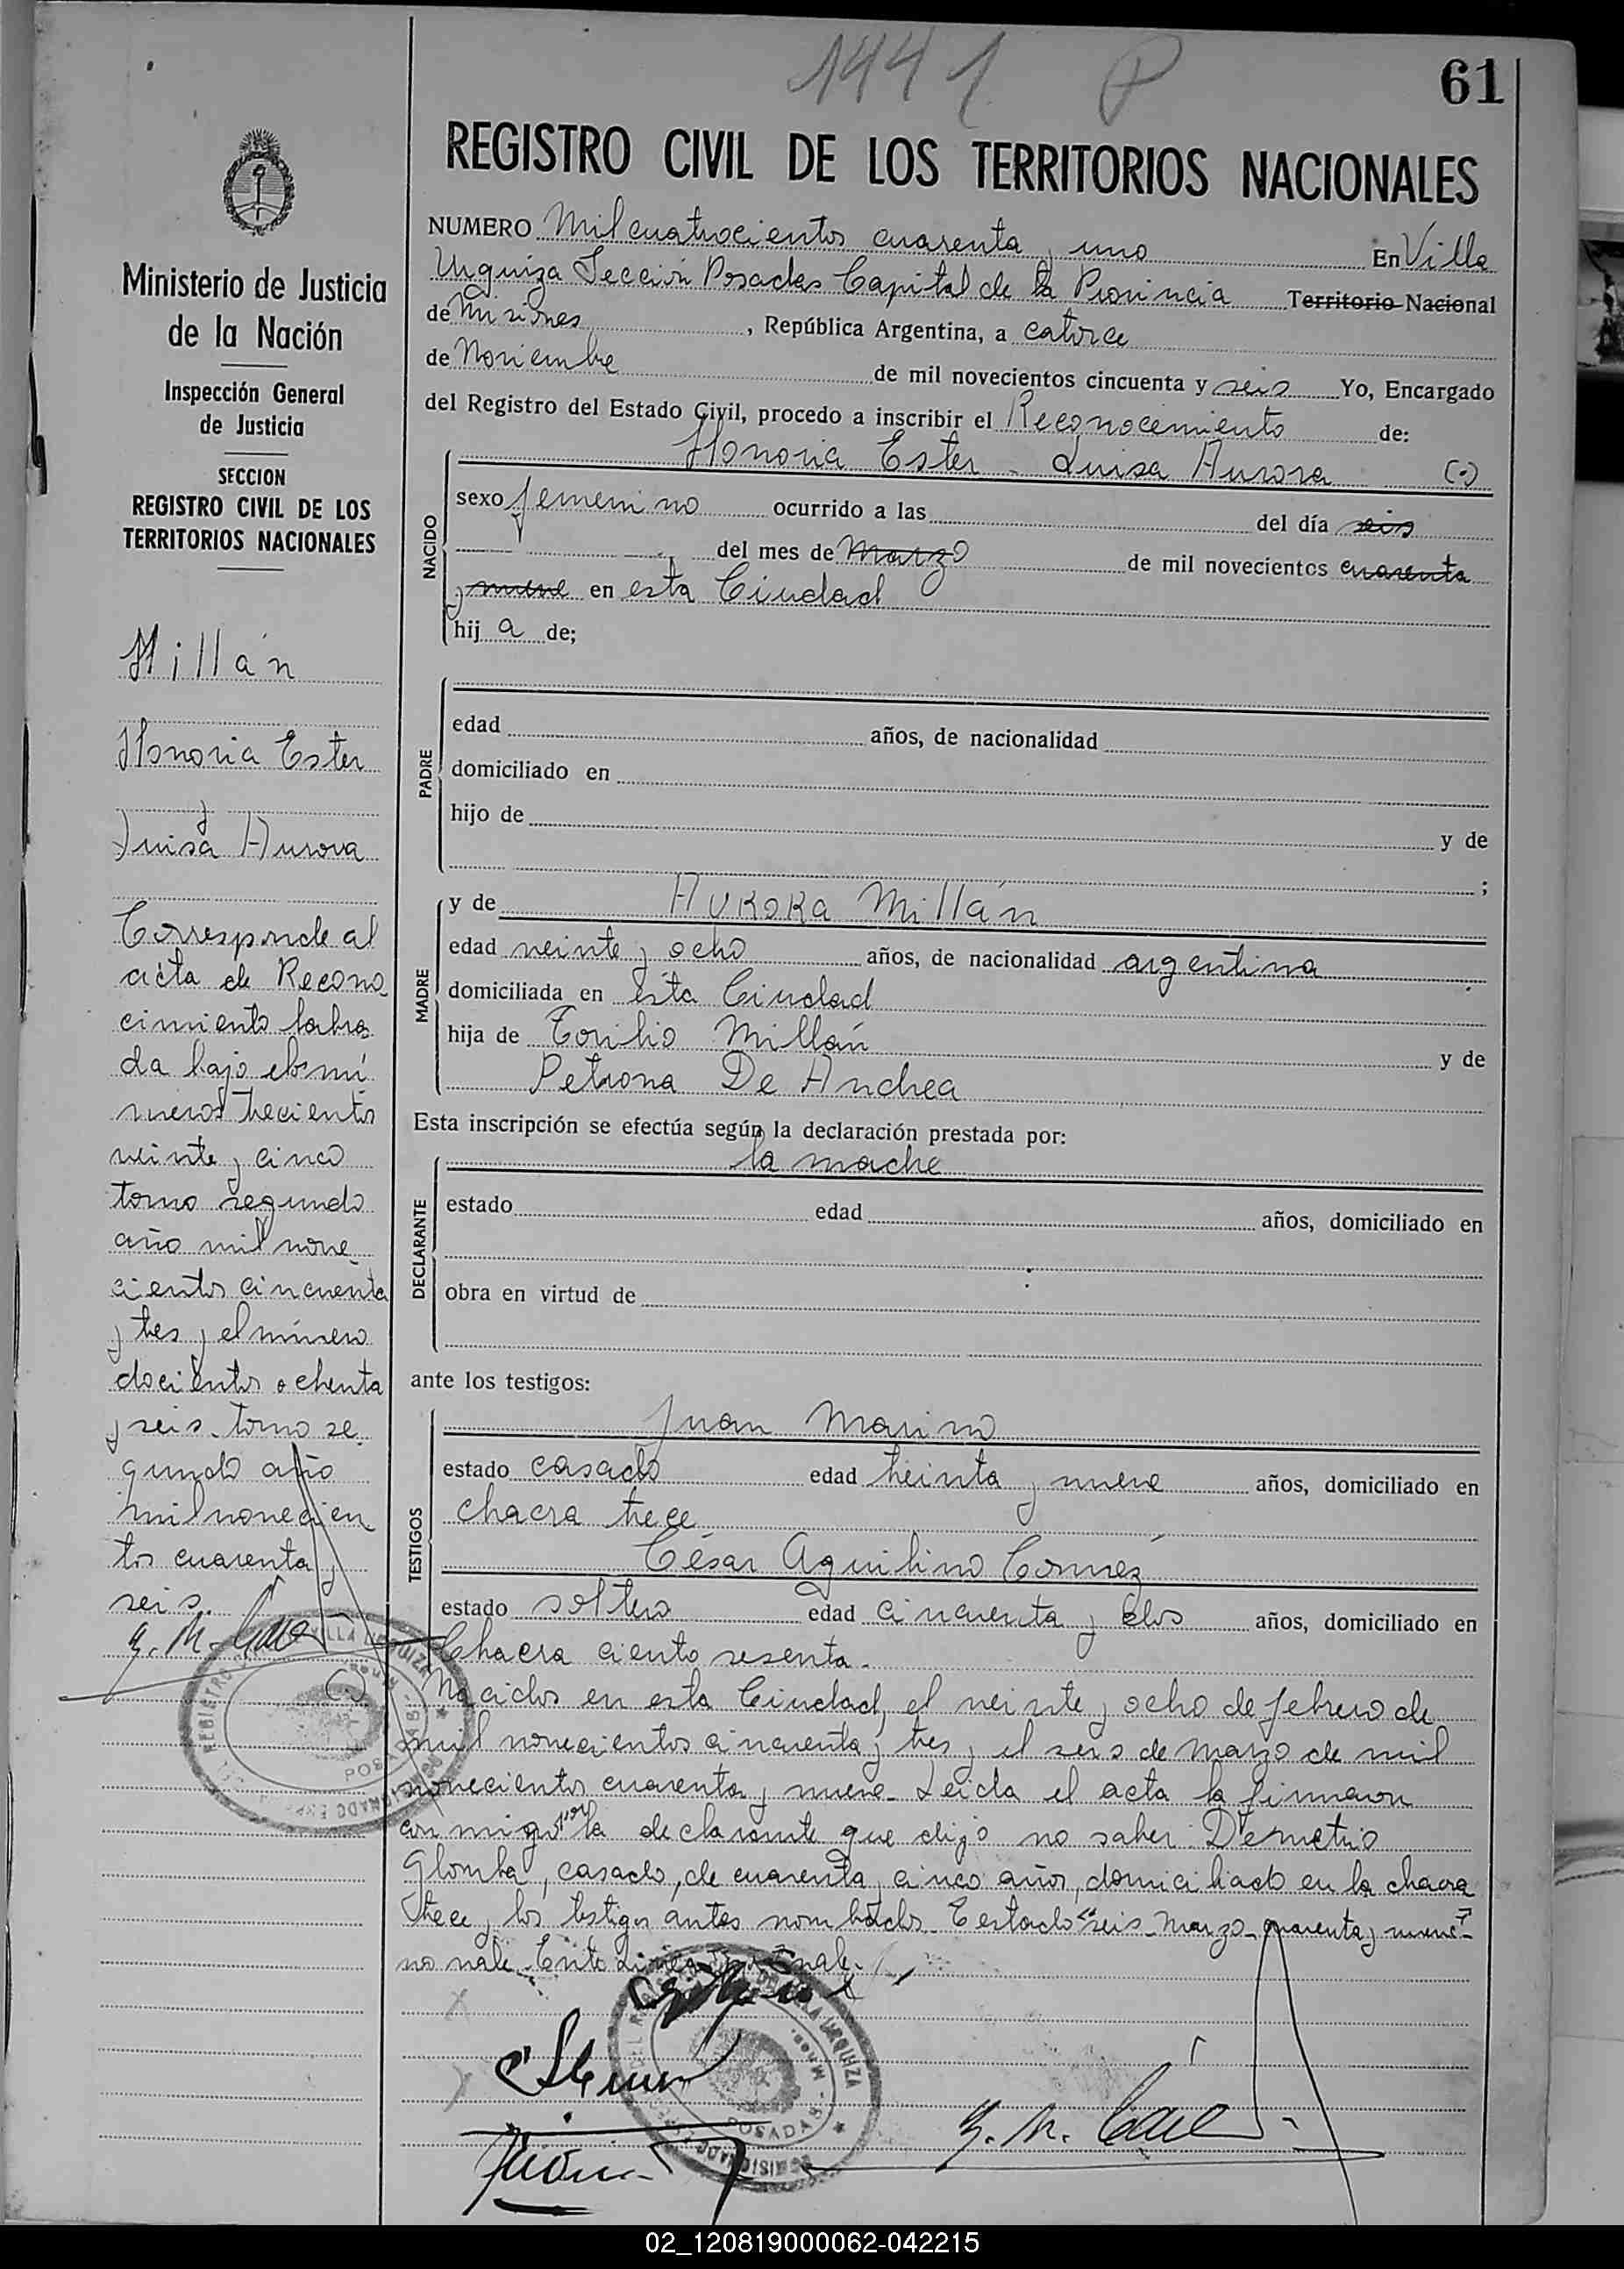 1441 P
61
REGISTRO CIVIL DE LOS TERRITORIOS NACIONALES
NUMERO Mil cuatrocientos cuarenta y uno En Villa
Urquiza Sección Posadas Capital de la Provincia Territorio Nacional
de Misiones, República Argentina, a catorce
de Noviembre de mil novecientos cincuenta y seis Yo, Encargado
del Registro del Estado Civil, procedo a inscribir el Reconocimiento de:
Honoria Ester - Luisa Aurora (-)
NACIDO
sexo femenino ocurrido a las del día seis
del mes de Marzo de mil novecientos cuarenta
y nueve en esta Ciudad
hij a de;
PADRE
edad años, de nacionalidad
domiciliado en
hijo de y de
;
MADRE
y de AURORA Millán
edad veinte y ocho años, de nacionalidad argentina
domiciliada en esta Ciudad
hija de Toribio Millán y de
Petrona De Andrea
Esta inscripción se efectúa según la declaración prestada por:
DECLARANTE
la madre
estado edad años, domiciliado en
obra en virtud de
ante los testigos:
TESTIGOS
Juan Marino
estado casado edad treinta y nueve años, domiciliado en
chacra trece
César Aquilino Gómez
estado soltero edad cincuenta y dos años, domiciliado en
Chacra ciento sesenta.
(-) Nacidos en esta Ciudad, el veinte y ocho de febrero de
mil novecientos cincuenta y tres y el seis de marzo de mil
novecientos cuarenta y nueve. Leida el acta la firmaron
conmigo por la declarante que dijo no saber Demetrio
Glomba, casado, de cuarenta y cinco años, domiciliado en la chacra
trece y los testigos antes nombrados. Testado "seis - marzo - cuarenta y nueve"
no vale. Entre Lineas por vale.
Ministerio de Justicia
de la Nación
Inspección General
de Justicia
SECCION
REGISTRO CIVIL DE LOS
TERRITORIOS NACIONALES
Millán
Honoria Ester
y
Luisa Aurora
Corresponde al
acta de Recono
cimiento labra
da bajo el nú
mero trecientos
veinte y cinco
tomo segundo
año mil nove
cientos cincuenta
y tres y el número
docientos ochenta
y seis - tomo se
gundo año
mil novecien
tos cuarenta y
seis.
POSADAS
VILLA URQUIZA
POSADAS
02_120819000062-042215